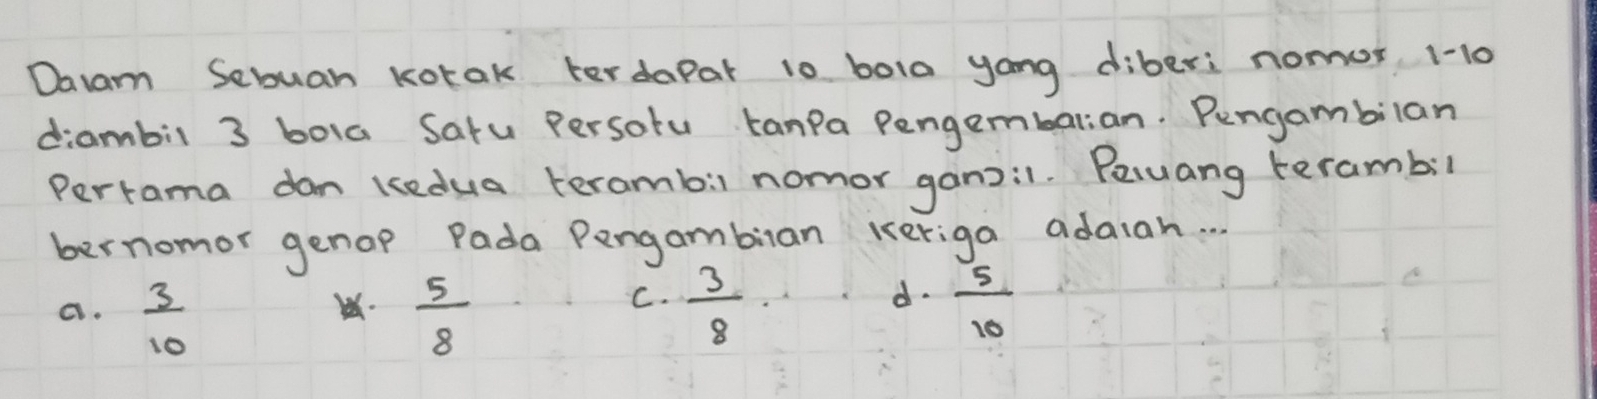 Dalam Sebuah kotak terdapat 10 bola yang diberi nomor 1-10
diambil 3 bola Satu Persatu tanpa Pengembalian. Pengambilan
Pertama dan kedua terambil nomor ganjil. Peluang terambil
bernomor genap Pada Pengambilan ketiga adalah ...
a. 3/10 b. 5/8 c. 3/8 d. 5/10